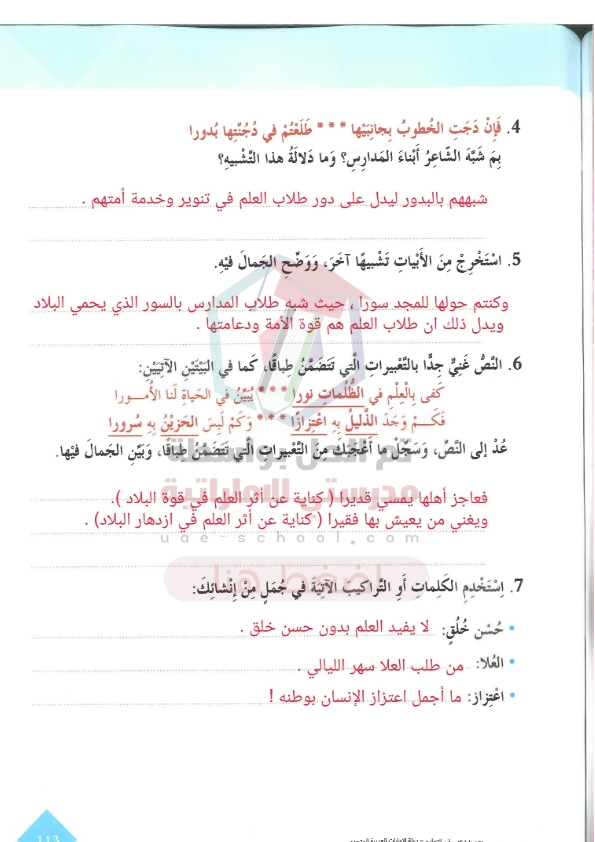 4. فَإِنْ دَجَتِ الخُطوبُ بِجانِبَيْها *** طَلَعْتُمْ في دُجُنَّتِها بُدورا
بِمَ شَبَّهَ الشّاعِرُ أَبْناءَ المَدارِسِ؟ وَما دَلالَةُ هذا التَّشْبيهِ؟
شبههم بالبدور ليدل على دور طلاب العلم في تنوير وخدمة أمتهم .
5. اسْتَخْرِجْ مِنَ الأَبْياتِ تَشْبيهًا آخَرَ، وَوَضِّحِ الجَمالَ فيْهِ.
وكنتم حولها للمجد سورا ، حيث شبه طلاب المدارس بالسور الذي يحمي البلاد
ويدل ذلك ان طلاب العلم هم قوة الأمة ودعامتها .
6. النَّصُّ غَنِيٌّ جِدًّا بِالتَّعْبيراتِ الَّتي تَتَضَمَّنُ طِباقًا، كَما في البَيْتَيْنِ الآتِيَيْنِ:
كَفى بِالْعِلْمِ في الظُّلُماتِ نورا *** يُبَيِّنُ في الحَياةِ لَنا الأُمورا
فَكَمْ وَجَدَ الذَّليلُ بِهِ اعْتِزازًا *** وَكَمْ لَبِسَ الحَزيْنُ بِهِ سُرورا
عُدْ إلى النَّصِّ، وَسَجِّلْ ما أَعْجَبَكَ مِنَ التَّعْبيراتِ الَّتي تَتَضَمَّنُ طِباقًا، وَبَيِّنِ الجَمالَ فيْها.
تم الحل بواسطة
مدرستي الاماراتية
فعاجز أهلها يمسي قديرا ( كناية عن أثر العلم في قوة البلاد ).
ويغني من يعيش بها فقيرا ( كناية عن أثر العلم في ازدهار البلاد) .
uae-school.com
اضغط هنا
7. اِسْتَخْدِمِ الكَلِماتِ أَوِ التَّراكيبَ الآتِيَةَ في جُمَلٍ مِنْ إِنْشائِكَ:
• حُسْن خُلُقٍ: لا يفيد العلم بدون حسن خلق .
• العُلا: من طلب العلا سهر الليالي .
• اعْتِزاز: ما أجمل اعتزاز الإنسان بوطنه !
113